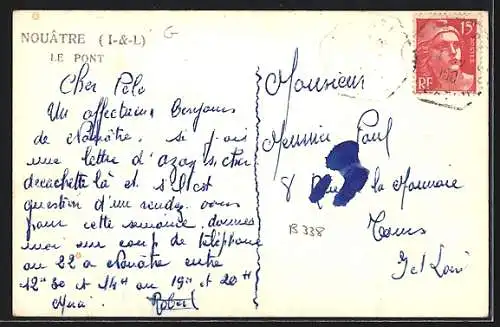 NOUÂTRE (I-&-L)
LE PONT
G
Cher Pélo
Un affectueux bonjour
de Nouâtre. si j'ai
une lettre d'azay le, cher
decachette là et s'il est
question d'un rendez vous
pour cette semaine, donnes
moi un coup de téléphone
au 22 a Nouâtre entre
12H 30 et 14H ou 19H et 20H
Merci. Robert
Monsieur
Paul
8 Rue la Monnaie
Tours
I et Loire
B 338
15F
POSTES
RF